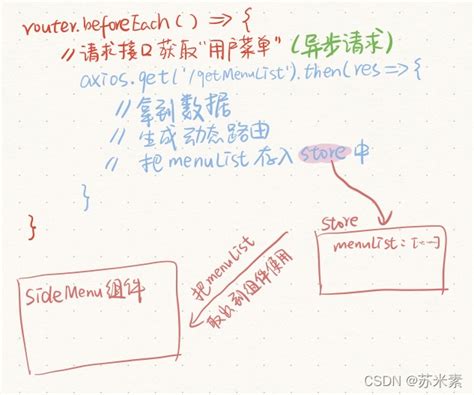 router.beforeEach() => {
// 请求接口获取"用户菜单" (异步请求)
axios.get('/getMenuList').then(res => {
// 拿到数据
// 生成动态路由
// 把 menuList 存入 store 中
}
}
store
menuList: [---]
把 menuList
取出到组件使用
sideMenu 组件
CSDN @苏米素